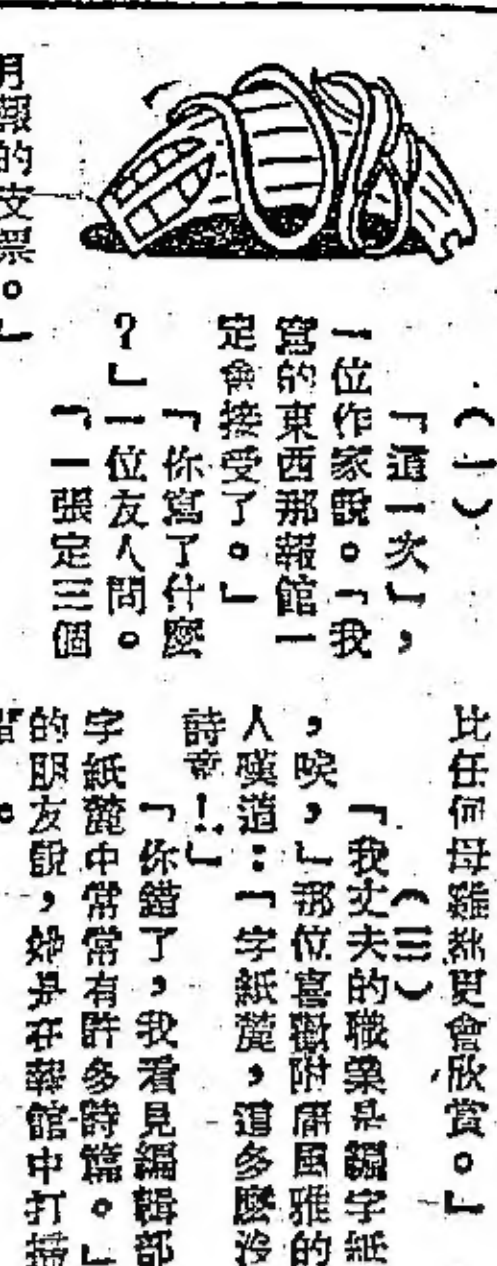 （一）
「這一次」，
一位作家說。「我
寫的東西那報館一
定會接受了。」
「你寫了什麼
？」一位友人問。
「一張定三個
月報的支票。」
比任何母雞都更會欣賞。」
（三）
「我丈夫的職業是編字紙
，唉，」那位喜歡附庸風雅的
人嘆道：「字紙麓，這多麼沒
詩意！」
「你錯了，我看見編輯部
字紙麓中常常有許多詩篇。」
的朋友說，她是在報館中打掃